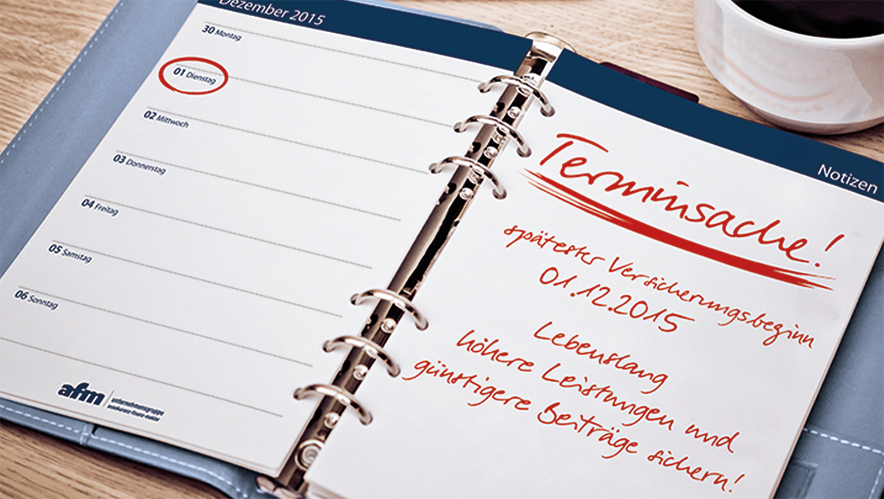 Dezember 2015
30 Montag
01 Dienstag
02 Mittwoch
03 Donnerstag
04 Freitag
05 Samstag
06 Sonntag
afm
unternehmensgruppe
Notizen
Terminsache!
spätester Versicherungsbeginn
01.12.2015
Lebenslang
höhere Leistungen und
günstigere Beiträge sichern!